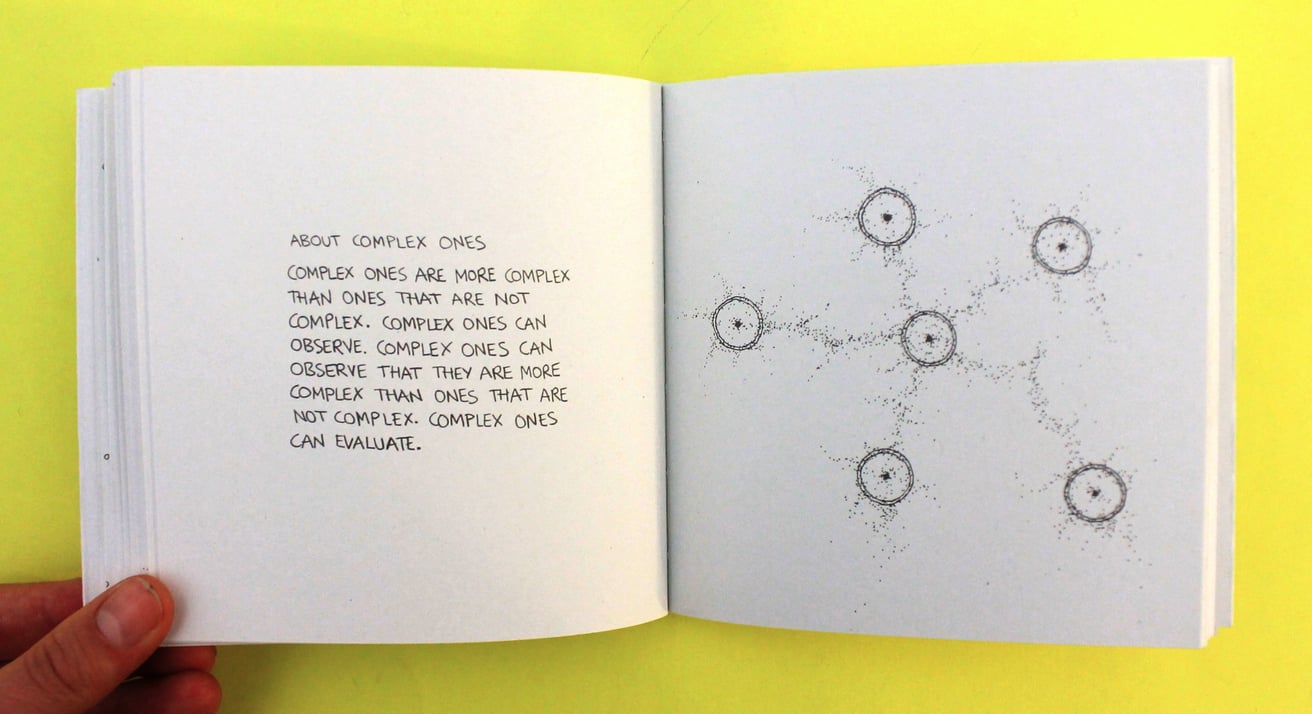 ABOUT COMPLEX ONES
COMPLEX ONES ARE MORE COMPLEX
THAN ONES THAT ARE NOT
COMPLEX. COMPLEX ONES CAN
OBSERVE. COMPLEX ONES CAN
OBSERVE THAT THEY ARE MORE
COMPLEX THAN ONES THAT ARE
NOT COMPLEX. COMPLEX ONES
CAN EVALUATE.